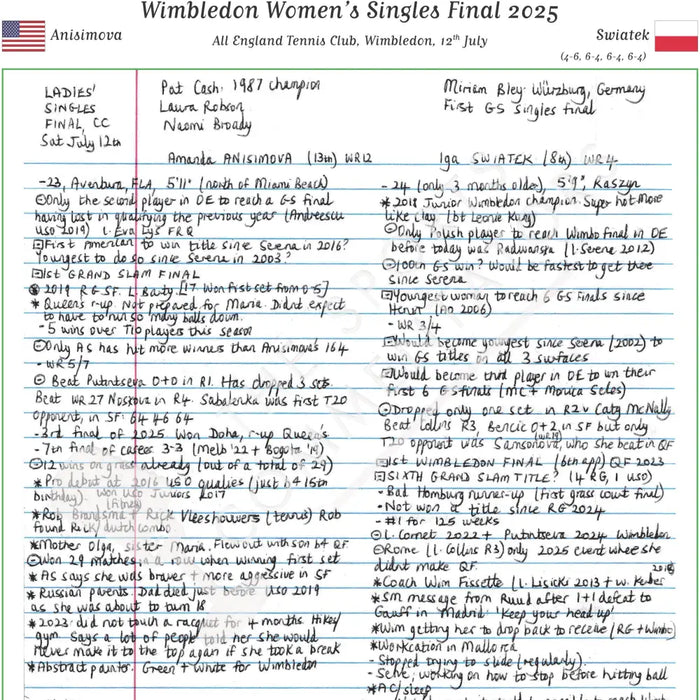 Wimbledon Women's Singles Final 2025
Anisimova
All England Tennis Club, Wimbledon, 12th July
Swiatek
(4-6, 6-4, 6-4, 6-4)
LADIES'
SINGLES
FINAL, CC
Sat July 12th
Pat Cash: 1987 champion
Laura Robson
Naomi Broady
Miriam Bley: Würzburg, Germany
First GS Singles final
Amanda ANISIMOVA (13th) WR12
-23, Aventura, FLA, 5'11" (north of Miami Beach)
Only the second player in OE to reach a GS final
having lost in qualifying the previous year (Andreescu
USO 2019) l. Eva Lys FRQ
First American to win title since Serena in 2016?
Youngest to do so since Serena in 2003?
1st GRAND SLAM FINAL
2019 RG SF. l. Barty [17 Won first set from 0-5]
* Queens r-up. Not prepared for Maria. Didnt expect
to have to run so many balls down.
- 5 wins over T10 players this season
Only AS has hit more winners than Anisimova's 164
- WR 5/7
Beat Putintseva 0+0 in R1. Has dropped 3 sets.
Beat WR27 Noskova in R4. Sabalenka was first T20
opponent, in SF: 64 46 64
-3rd final of 2025 Won Doha, r-up Queen's
-7th final of career 3-3 (Melb '22 + Bogota '19)
12 wins on grass already (out of a total of 29)
* Pro debut at 2016 USO qualies (just b4 15th
birthday). won USO Juniors 2017
* Rob Brandsma + Rick Vleeshouwers (tennis) Rob
found Rick/dutch combo
* Mother Olga, sister Maria. Flew out with son b4 QF
Won 29 matches in a row when winning first set
* AS says she was braver + more aggressive in SF
* Russian parents. Dad died just before USO 2019
as she was about to turn 18
* 2023: did not touch a racquet for 4 months. Hikes/
gym. Says a lot of people told her she would
never make it to the top again if she took a break
* Abstract painter. Green + white for Wimbledon
Iga SWIATEK (8th) WR4
- 24 (only 3 months older), 5'9", Raszyn
* 2018 Junior Wimbledon champion. Super hot more
like clay (bt Leonie Kung)
Only Polish player to reach Wimbo Final in OE
before today was Radwanska (l. Serena 2012)
100th GS win? Would be fastest to get there
since Serena
Youngest woman to reach 6 GS Finals since
Henin (AO 2006)
- WR 3/4
Would become youngest since Serena (2002) to
win GS titles on all 3 surfaces
Would become third player in OE to win their
first 6 GS finals (MC + Monica Seles)
Dropped only one set in R2 v Caty McNally
Beat Collins R3, Bencic 0+2 in SF but only
T20 opponent was Samsonova, who she beat in QF
1st WIMBLEDON FINAL (6th app) QF 2023
SIXTH GRAND SLAM TITLE? (4 RG, 1 USO)
- Bad Homburg runner-up (first grass court final)
- Not won a title since RG 2024
- #1 for 125 weeks
l. Cornet 2022 + Putintseva 2024 Wimbledon
Rome (l. Collins R3) only 2025 event where she
didnt make QF
2018
* Coach Wim Fissette (l. Lisicki 2013 + w. Kerber
* SM message from Ruud after 1+1 defeat to
Gauff in Madrid 'keep your head up'
* Wim getting her to drop back to receive (RG + Wimbo)
* Workcation in Mallorca
- Stopped trying to slide (regularly).
- Serve; working on how to stop before hitting ball
* AC/sleep